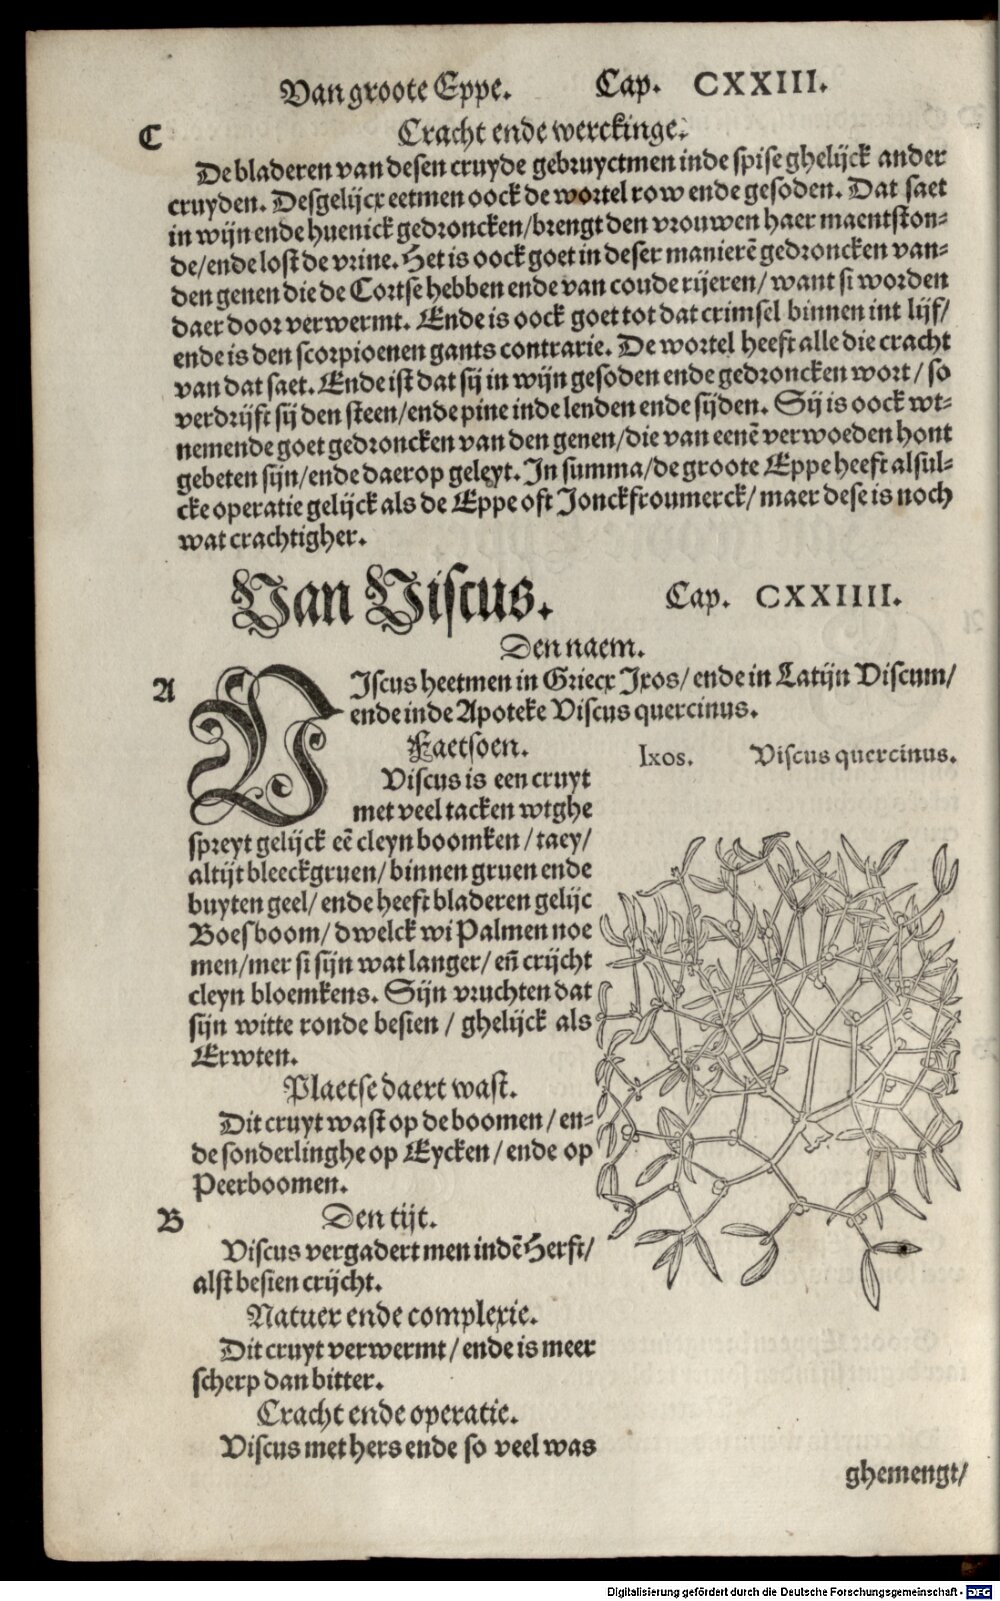 Van groote Eppe. Cap. CXXIII.
C Cracht ende werckinge.
De bladeren van desen cruyde gebruyctmen inde spise ghelijck ander
cruyden. Desgelijcx eetmen oock de wortel row ende gesoden. Dat saet
in wijn ende huenick gedroncken/brengt den vrouwen haer maentston-
de/ende lost de vrine. Het is oock goet in deser manierē gedroncken van-
den genen die de Cortse hebben ende van coude rijeren/ want si worden
daer door verwermt. Ende is oock goet tot dat crimsel binnen int lijf/
ende is den scorpioenen gants contrarie. De wortel heeft alle die cracht
van dat saet. Ende ist dat sij in wijn gesoden ende gedroncken wort/ so
verdrijft sij den steen/ende pine inde lenden ende sijden. Sij is oock wt-
nemende goet gedroncken van den genen/die van eenē verwoeden hont
gebeten sijn/ende daer op geleyt. In summa/de groote Eppe heeft alsul-
cke operatie gelijck als de Eppe oft Jonckfroumerck/ maer dese is noch
wat crachtigher.
Van Viscus. Cap. CXXIIII.
Den naem.
A VIscus heetmen in Griecx Ixos/ ende in Latijn Viscum/
ende inde Apoteke Viscus quercinus.
Faetsoen. Ixos. Viscus quercinus.
Viscus is een cruyt
met veel tacken wtghe
spreyt gelijck eē cleyn boomken/ taey/
altijt bleeckgruen/ binnen gruen ende
buyten geel/ ende heeft bladeren gelijc
Boesboom/ dwelck wi Palmen noe
men/mer si sijn wat langer/ eñ crijcht
cleyn bloemkens. Sijn vruchten dat
sijn witte ronde besien/ ghelijck als
Erwten.
Plaetse daert wast.
Dit cruyt wast op de boomen/ en-
de sonderlinghe op Eycken/ ende op
Peerboomen.
B Den tijt.
Viscus vergadert men indē Herft/
alst besien crijcht.
Natuer ende complexie.
Dit cruyt verwermt/ ende is meer
scherp dan bitter.
Cracht ende operatie.
Viscus met hers ende so veel was
ghemengt/
Digitalisierung gefördert durch die Deutsche Forschungsgemeinschaft - DFG